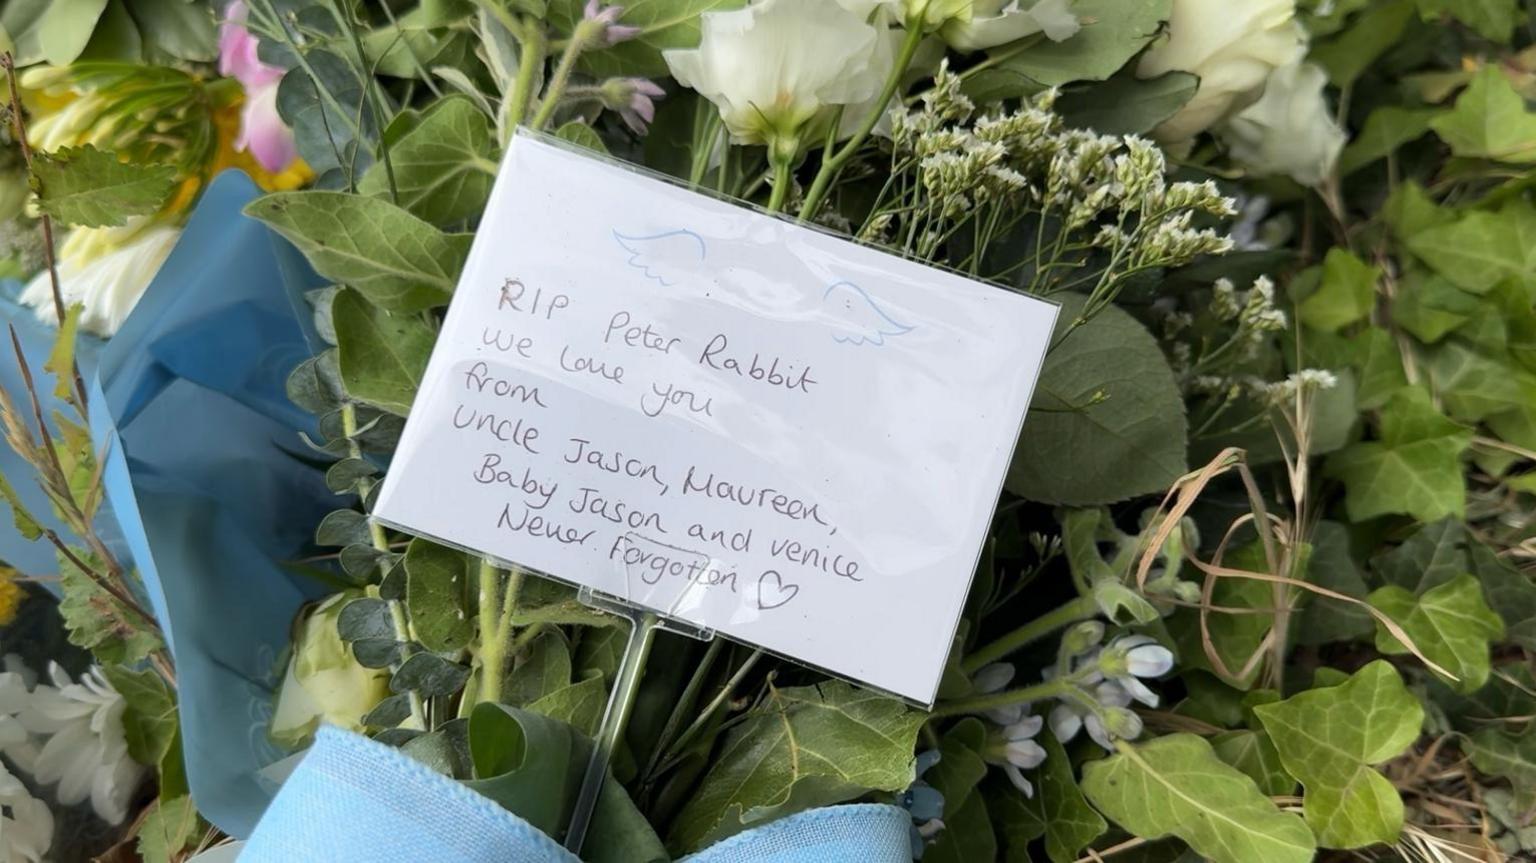 RIP Peter Rabbit
we love you
from
Uncle Jason, Maureen,
Baby Jason and venice
Never Forgotten ♡